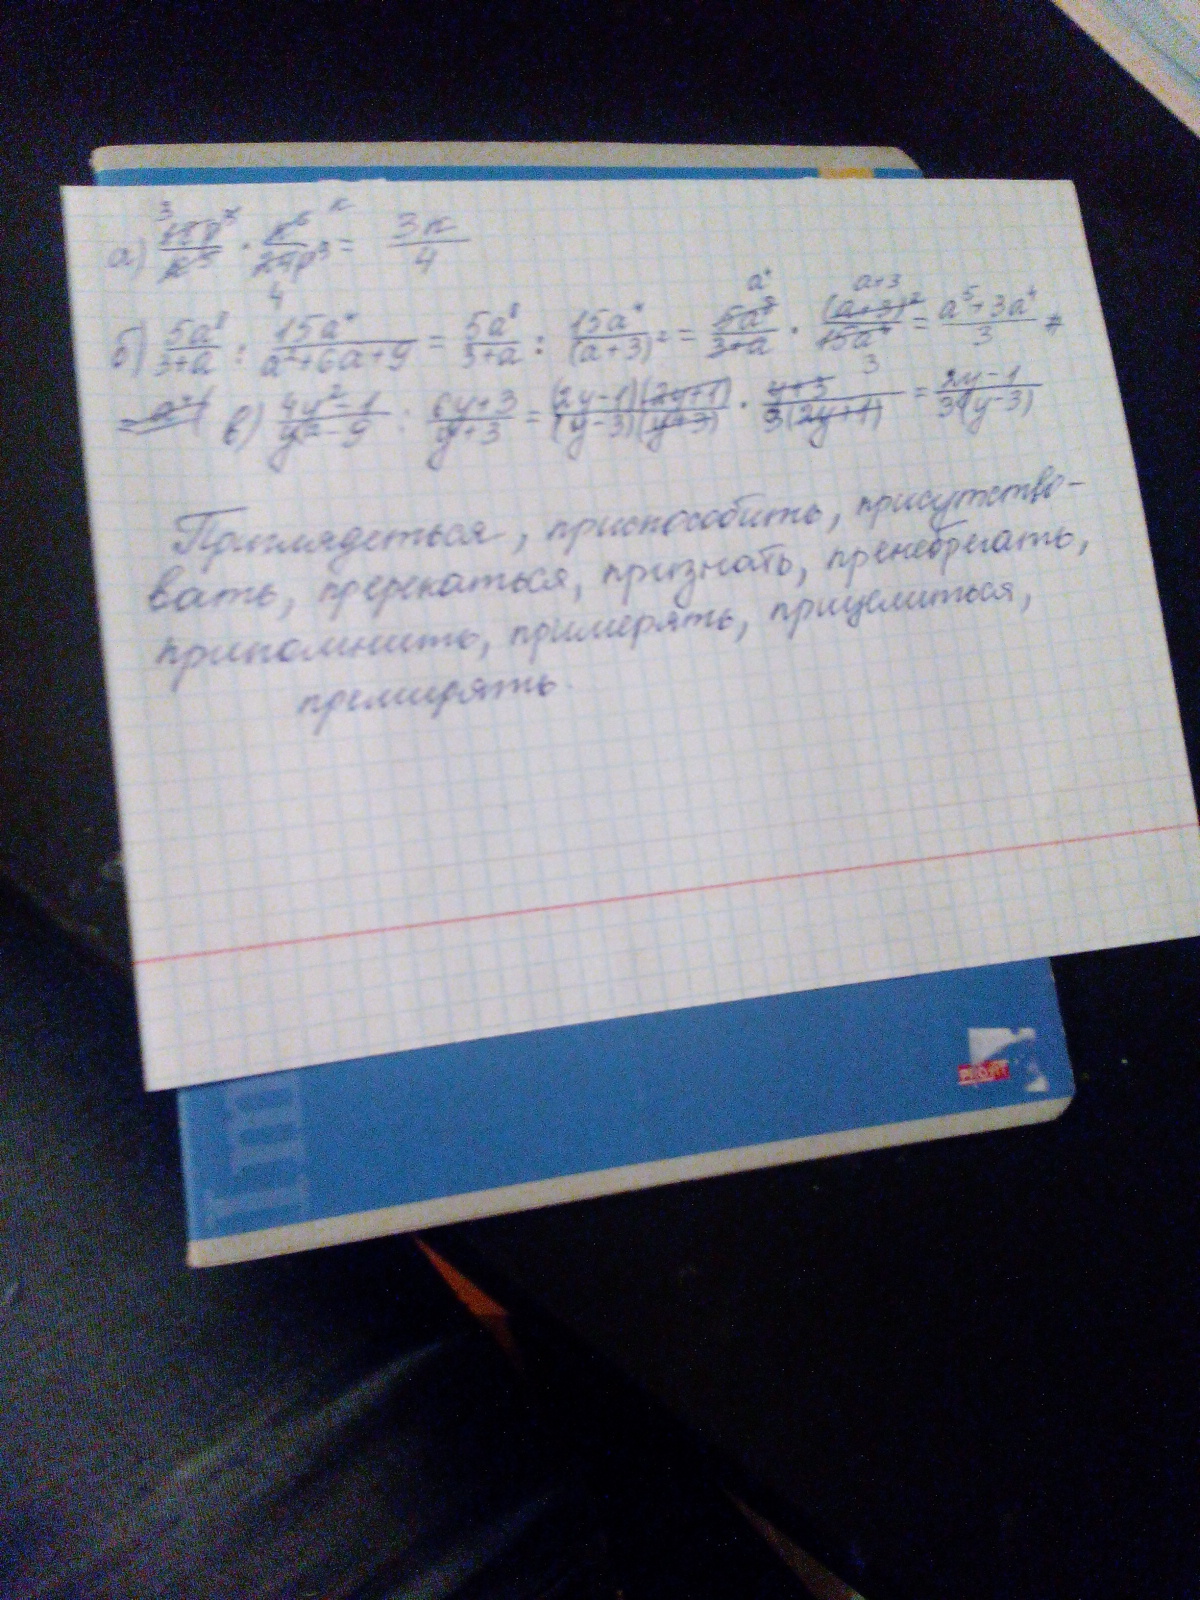 а) 15p³/к⁵ · к⁶/20p³ = 3к/4
б) 5a⁸/3+a : 15a⁴/a²+6a+9 = 5a⁸/3+a : 15a⁴/(a+3)² = 5a⁸/3+a · (a+3)²/15a⁴ = a⁵+3a⁴/3
в) 4y²-1/y²-9 : 6y+3/y+3 = (2y-1)(2y+1)/(y-3)(y+3) · y+3/3(2y+1) = 2y-1/3(y-3)
Приглядеться, приспособить, присутство-
вать, пререкаться, признать, пренебрегать,
припомнить, примерять, прицелиться,
PROFIT